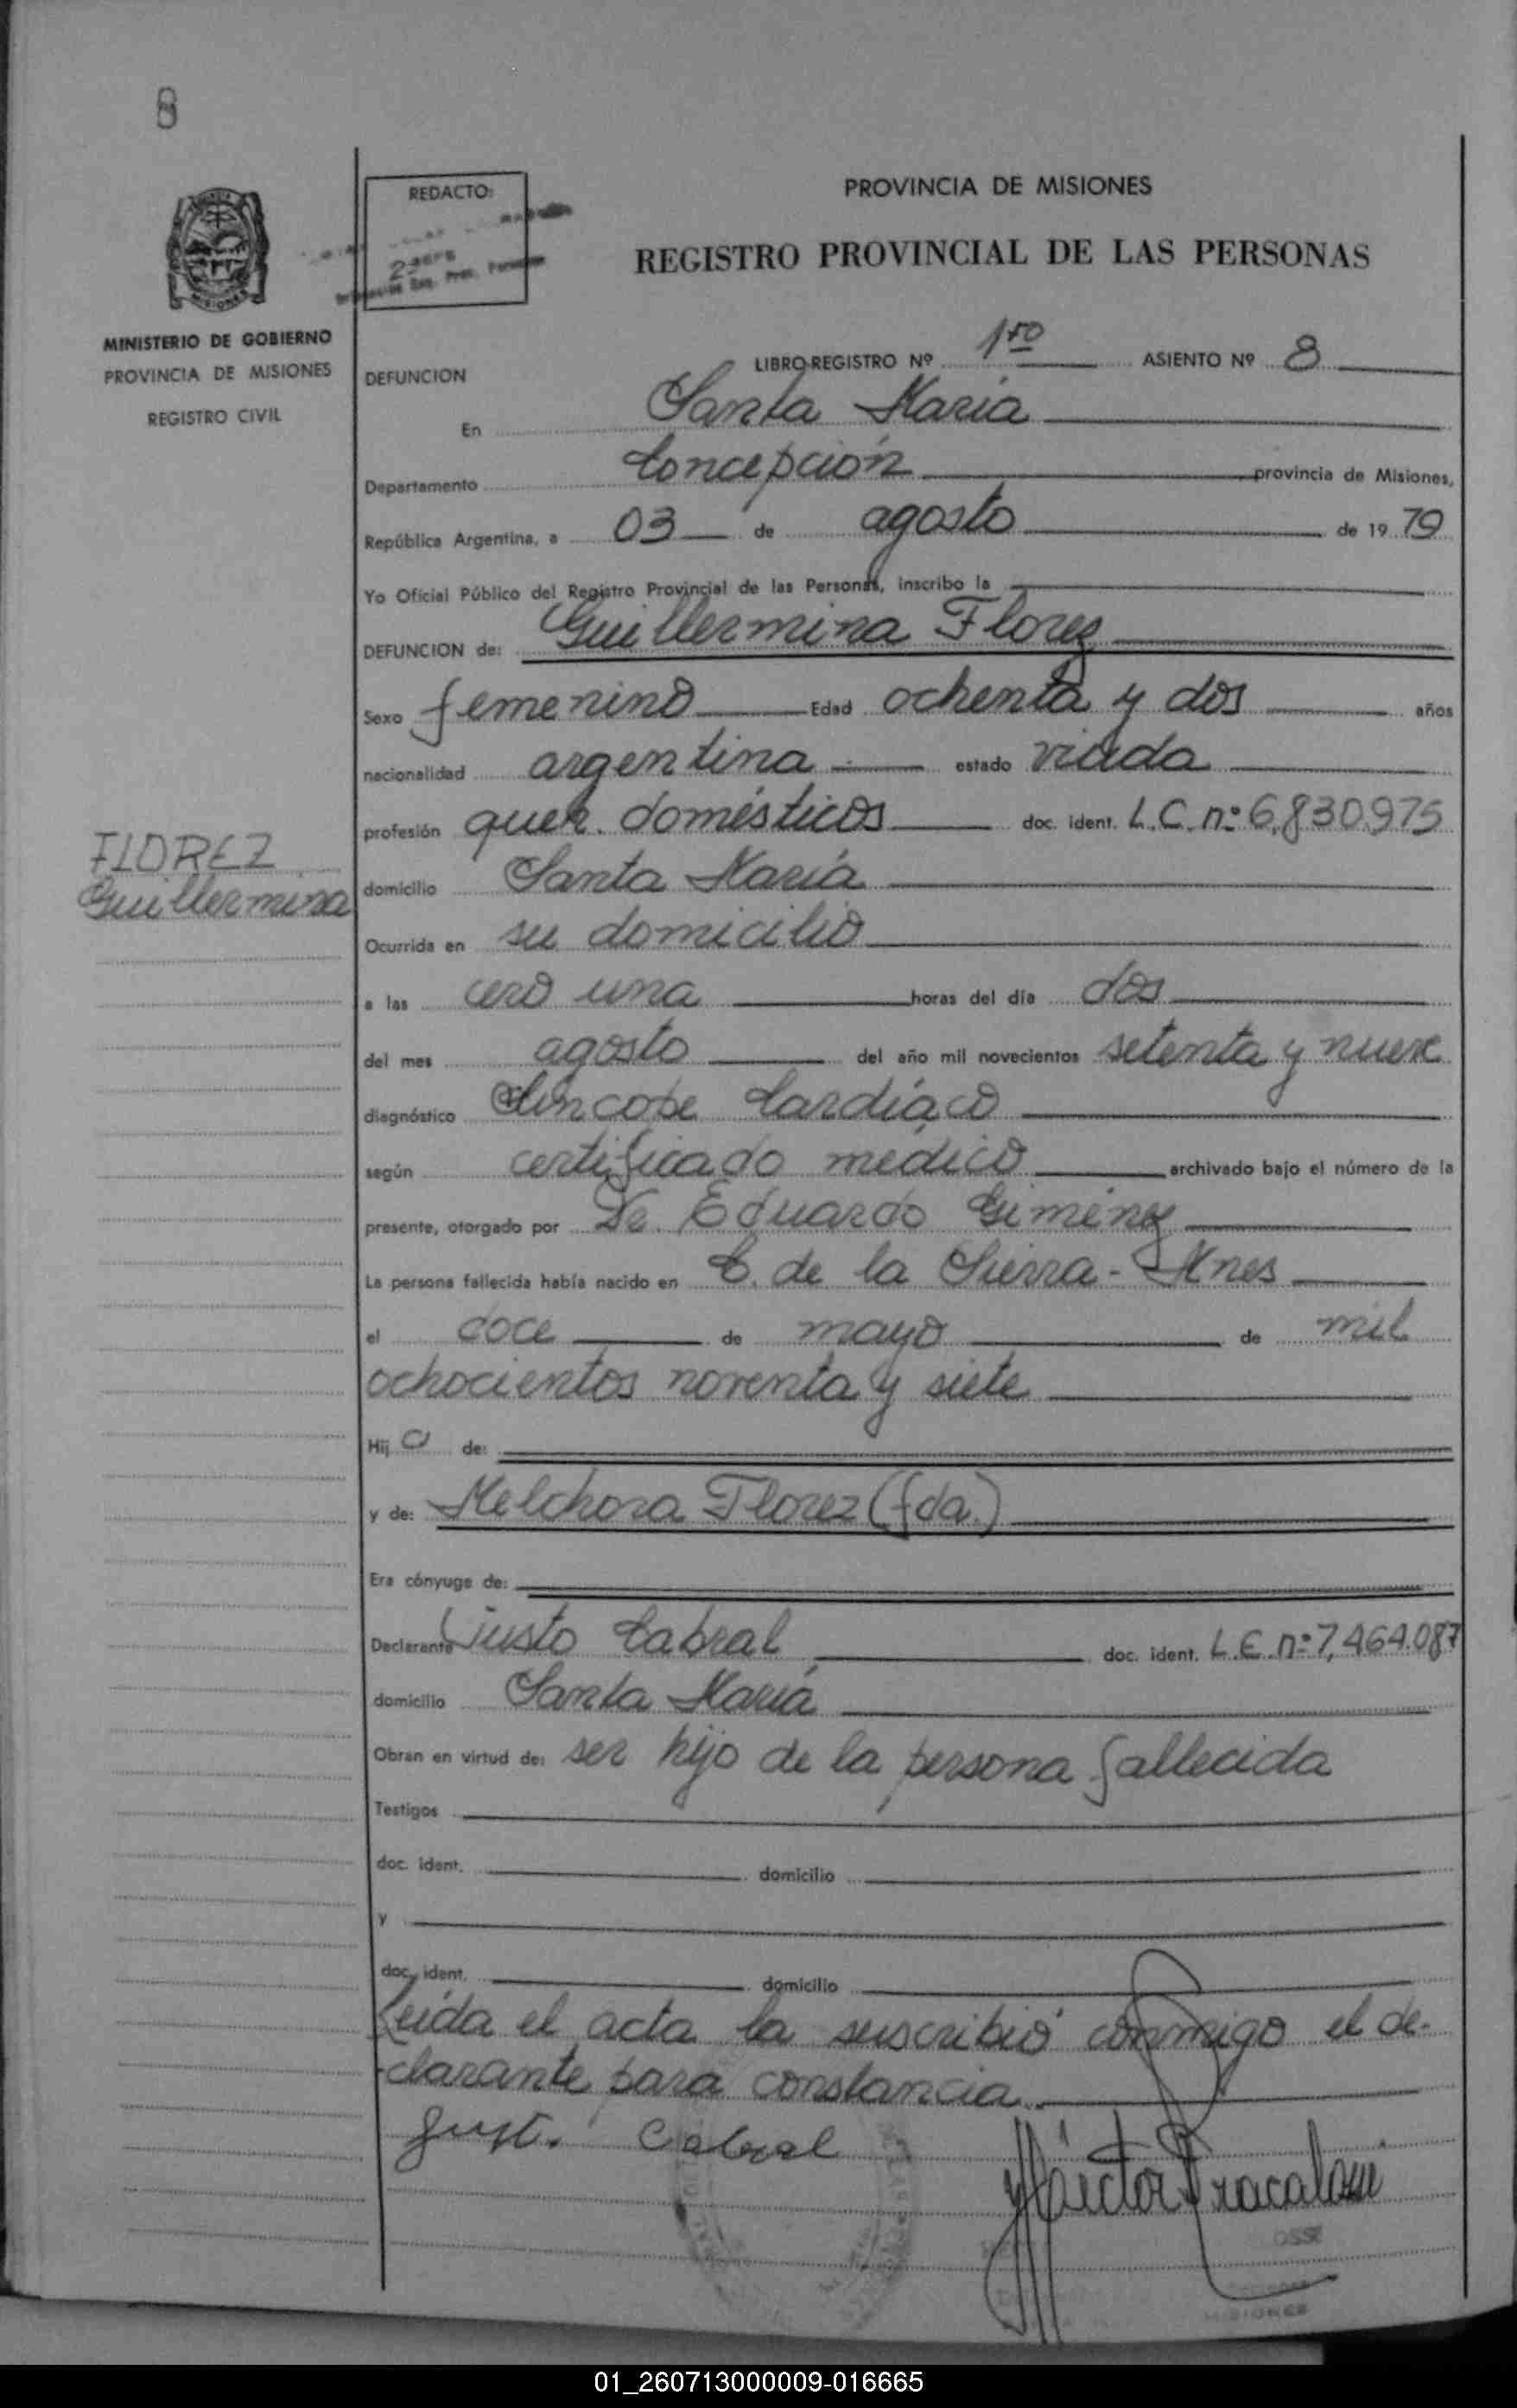 8
REDACTO:
PROVINCIA DE MISIONES
REGISTRO PROVINCIAL DE LAS PERSONAS
MINISTERIO DE GOBIERNO
PROVINCIA DE MISIONES
REGISTRO CIVIL
LIBRO-REGISTRO Nº 1ro ASIENTO Nº 8
DEFUNCION
En Santa María
Departamento Concepción provincia de Misiones,
República Argentina, a 03 de agosto de 19 79
Yo Oficial Público del Registro Provincial de las Personas, inscribo la
DEFUNCION de: Guillermina Florez
Sexo femenino Edad ochenta y dos años
nacionalidad argentina estado viuda
profesión queh. domésticos doc. ident. L.C. nº 6,830.975
FLOREZ
Guillermina
domicilio Santa María
Ocurrida en su domicilio
a las cero una horas del día dos
del mes agosto del año mil novecientos setenta y nueve
diagnóstico Síncope Cardíaco
según certificado médico archivado bajo el número de la
presente, otorgado por Dr. Eduardo Gimenez
La persona fallecida había nacido en C. de la Sierra - Mnes
el doce de mayo de mil
ochocientos noventa y siete
Hij a de:
y de: Melchora Florez (fda.)
Era cónyuge de:
Declarante Justo Cabral doc. ident. L.E. nº 7,464.087
domicilio Santa María
Obran en virtud de: ser hijo de la persona fallecida
Testigos
doc. ident. domicilio
y
doc. ident. domicilio
Leída el acta la suscribió conmigo el de-
clarante para constancia.
Just. Cabral
MISIONES
01_260713000009-016665